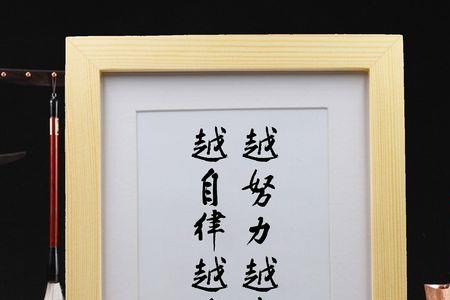 越努力越
越自律越